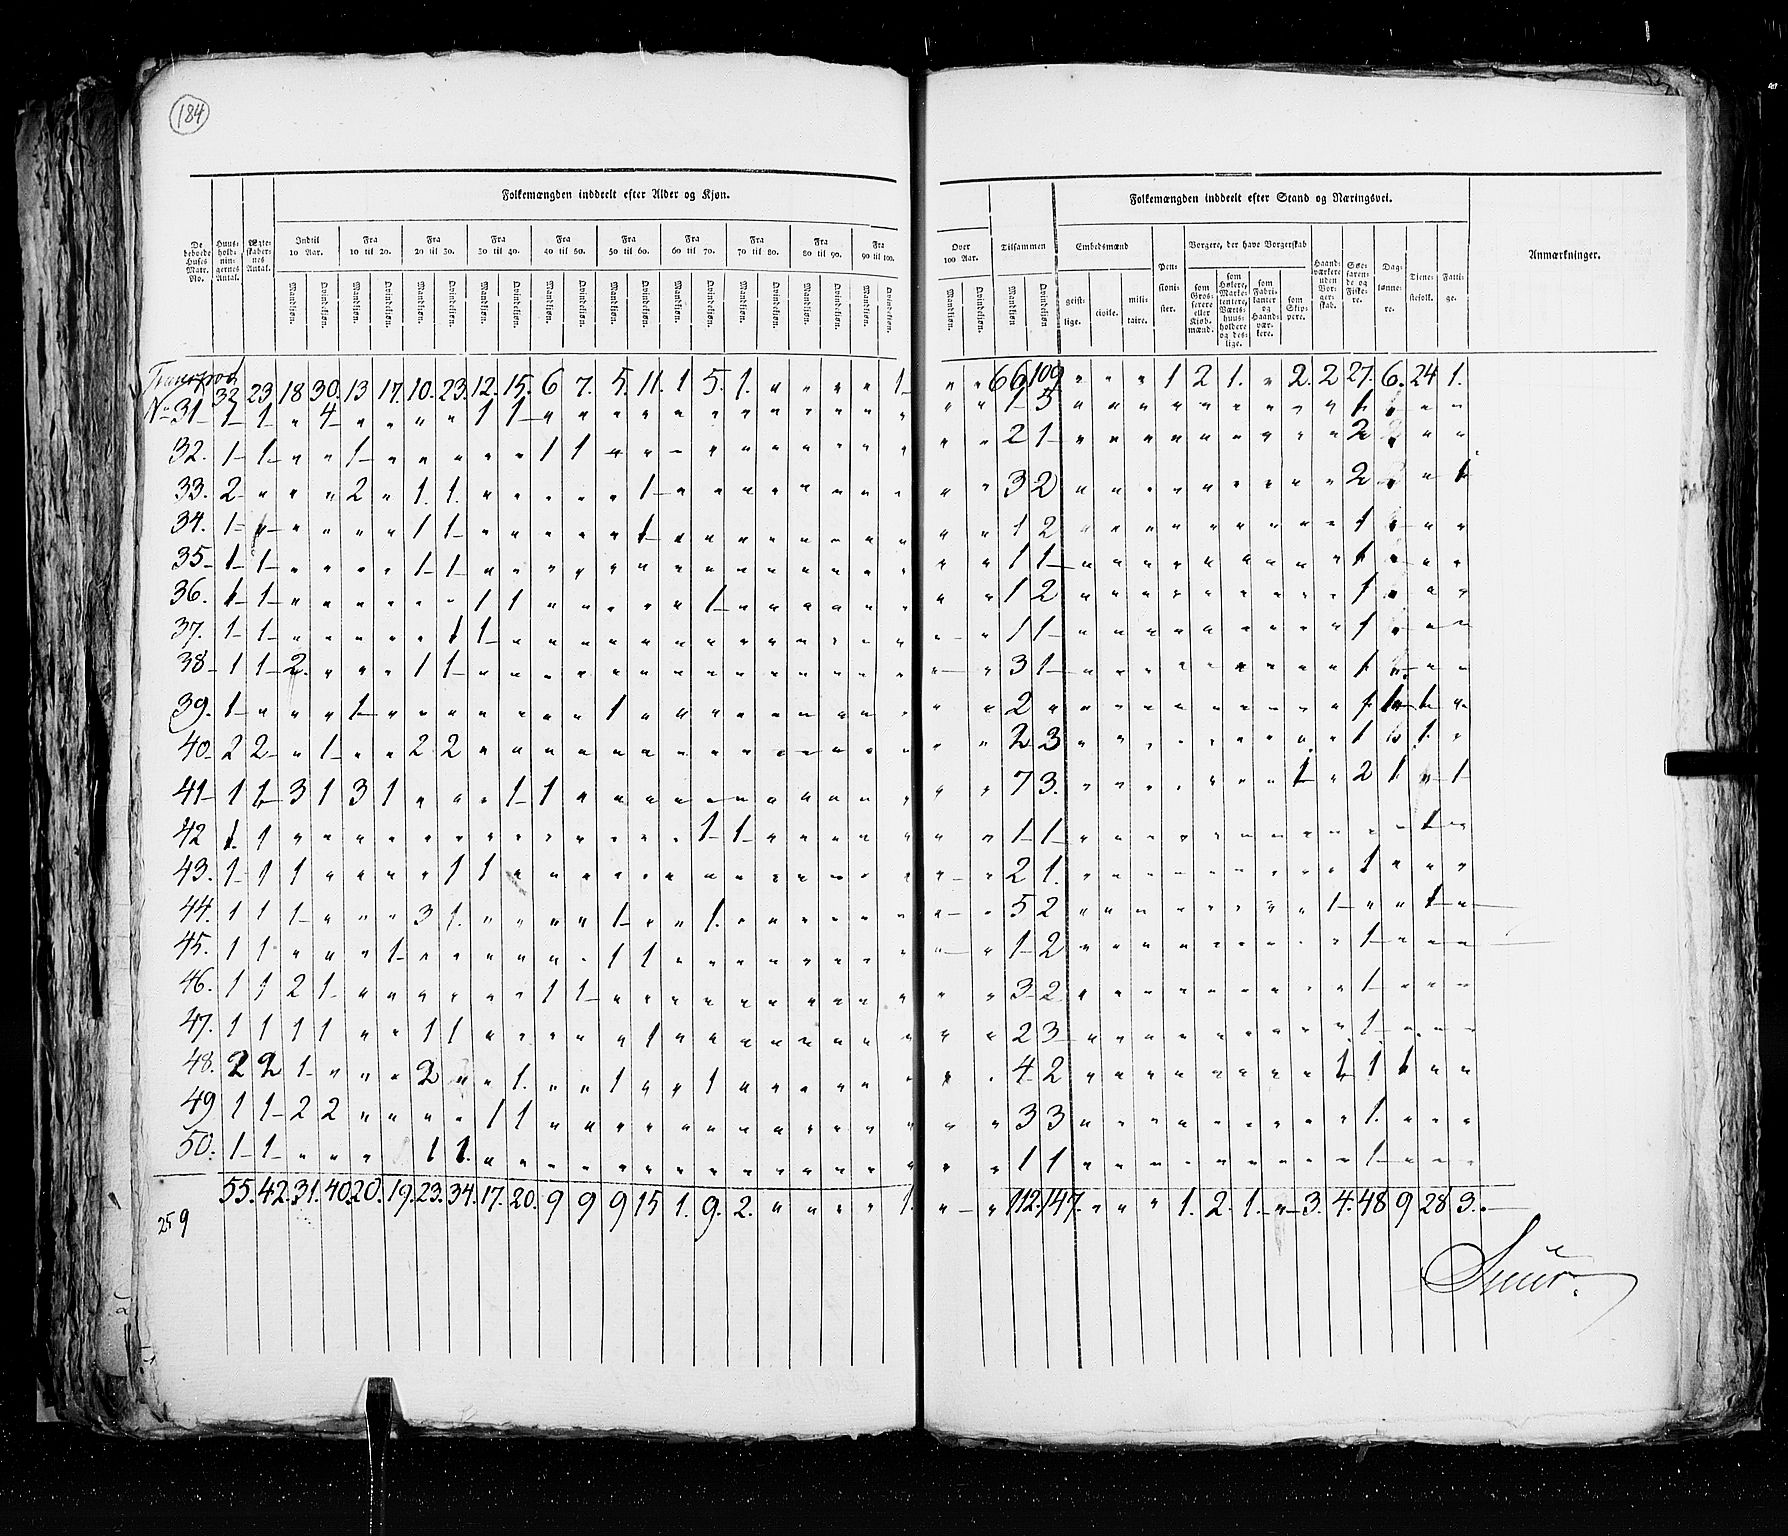 184
Folkemængden inddeelt efter Alder og Kjøn.
De beboede Huses Matr. No. | Huus-holdningernes Antal. | Ægteskabernes Antal. | Indtil 10 Aar. | Fra 10 til 20. | Fra 20 til 30. | Fra 30 til 40. | Fra 40 til 50. | Fra 50 til 60. | Fra 60 til 70. | Fra 70 til 80. | Fra 80 til 90. | Fra 90 til 100.
Mandkjøn. Qvindekjøn. Mandkjøn. Qvindekjøn. Mandkjøn. Qvindekjøn. Mandkjøn. Qvindekjøn. Mandkjøn. Qvindekjøn. Mandkjøn. Qvindekjøn. Mandkjøn. Qvindekjøn. Mandkjøn. Qvindekjøn. Mandkjøn. Qvindekjøn. Mandkjøn. Qvindekjøn.
Transport 32 23. 18 30. 13 17. 10. 23. 12. 15. 6 7. 5. 11. 1 5. 1. " " " " 1
No 31 1 1 " 4 " " " " 1 1 " " " " " " " " " " " "
32. 1 1 " " 1 " " " " " 1 1 " " " " " " " " " "
33. 2 " " " 2 " 1. 1. " " " " " 1 " " " " " " " "
34. 1 " " " " " 1 1 " " " " " 1 " " " " " " " "
35 1 1 " " " " 1 1 " " " " " " " " " " " " " "
36. 1 1 " " " " " " 1 1 " " " " " 1 " " " " " "
37. 1 1 " " " " " 1 1 " " " " " " " " " " " " "
38 1 1 2. " " " 1 1 " " " " " " " " " " " " " "
39. 1 " " " 1 " " " " " " " 1 " " " " " " " " "
40 2 2 " 1 " " 2 2 " " " " " " " " " " " " " "
41 1 1 3 1 3 1 " " " 1 1 " " " " " " " " " " "
42 1. 1 " " " " " " " " " " " " " 1 1 " " " " "
43. 1 1 1 " " " " 1 1 " " " " " " " " " " " " "
44. 1 1 1 " " " 3 1. " " " " 1 " " 1. " " " " " "
45. 1 1 " " " 1 " " " " " " 1 1 " " " " " " " "
46. 1 1 2 1 " " " " " " 1 1 " " " " " " " " " "
47. 1 1 1 1 " " 1 1 " " " " " 1 " " " " " " " "
48. 2 2 1 " " " 2 " " 1. " " 1 " " 1 " " " " " "
49 1 1 2 2 " " " " 1 1 " " " " " " " " " " " "
50. 1 1 " " " 1 1. " " " " " " " " " " " " " "
55. 42. 31. 40. 20. 19. 23. 34. 17. 20. 9 9 9 15 1. 9. 2. " " " " 1.
259
Folkemængden inddeelt efter Stand og Næringsvei.
Over 100 Aar. | Tilsammen | Embedsmænd | Pensionister. | Borgere, der have Borgerskab | Haandværkere uden Borgerskab. | Søefarende og Fiskere. | Daglønnere. | Tienestefolk. | Fattige. | Anmærkninger.
Mandkjøn. Qvindekjøn. Mandkjøn Qvindekjøn geistlige. civile. militaire. som Grosserere eller Kjøbmænd. som Høkere, Marketentere, Værtshuusholdere og deslige. som Fabrikanter og Haandværkere. som Skippere.
" " 66 109 " " " 1 2 1. " 2. 2 27. 6. 24 1.
" " 1 5 " " " " " " " " " 1 " " "
" " 2 1 " " " " " " " " " 2 " " "
" " 3 2 " " " " " " " " " 2 " " 1
" " 1 2 " " " " " " " " " 1 " " "
" " 1 1 " " " " " " " " " 1 " " "
" " 1 2 " " " " " " " " " 1 " " "
" " 1 1 " " " " " " " " " 1 " " "
" " 3 1 " " " " " " " " " 1 " " "
" " 2 " " " " " " " " " " 1 1 1 "
" " 2 3 " " " " " " " " " 1 " 1. "
" " 7 3. " " " " " " " 1 " 2 1 " 1
" " 1 1 " " " " " " " " " " " 1 "
" " 2 1. " " " " " " " " " 1 " " "
" " 5 2 " " " " " " " " 1 " " 1 "
" " 1 2 " " " " " " " " " 1 " " "
" " 3 2 " " " " " " " " " 1 " " "
" " 2 3 " " " " " " " " " 1 " " "
" " 4 2 " " " " " " " " 1 1 1 " "
" " 3 3 " " " " " " " " " 1. " " "
" " 1 1 " " " " " " " " " 1 " " "
" " 112. 147. " " " 1. 2. 1. " 3. 4. 48 9 28 3.